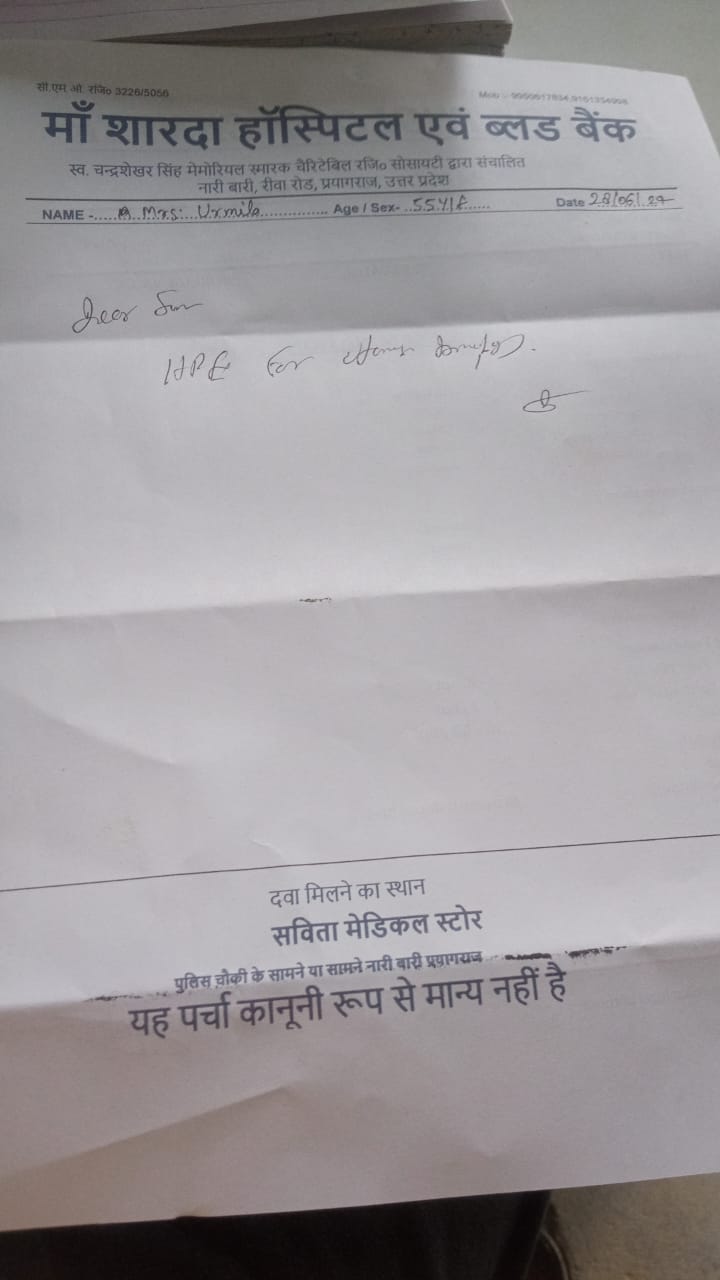 सी.एम.ओ. रजि० 3226/5056
माँ शारदा हॉस्पिटल एवं ब्लड बैंक
स्व. चन्द्रशेखर सिंह मेमोरियल स्मारक चैरिटेबिल रजि० सोसायटी द्वारा संचालित
नारी बारी, रीवा रोड, प्रयागराज, उत्तर प्रदेश
NAME - Mrs. Urmila Age / Sex- 55Y/F Date
Dear
HPE For
दवा मिलने का स्थान
सविता मेडिकल स्टोर
पुलिस चौकी के सामने या सामने नारी बारी प्रयागराज
यह पर्चा कानूनी रूप से मान्य नहीं है